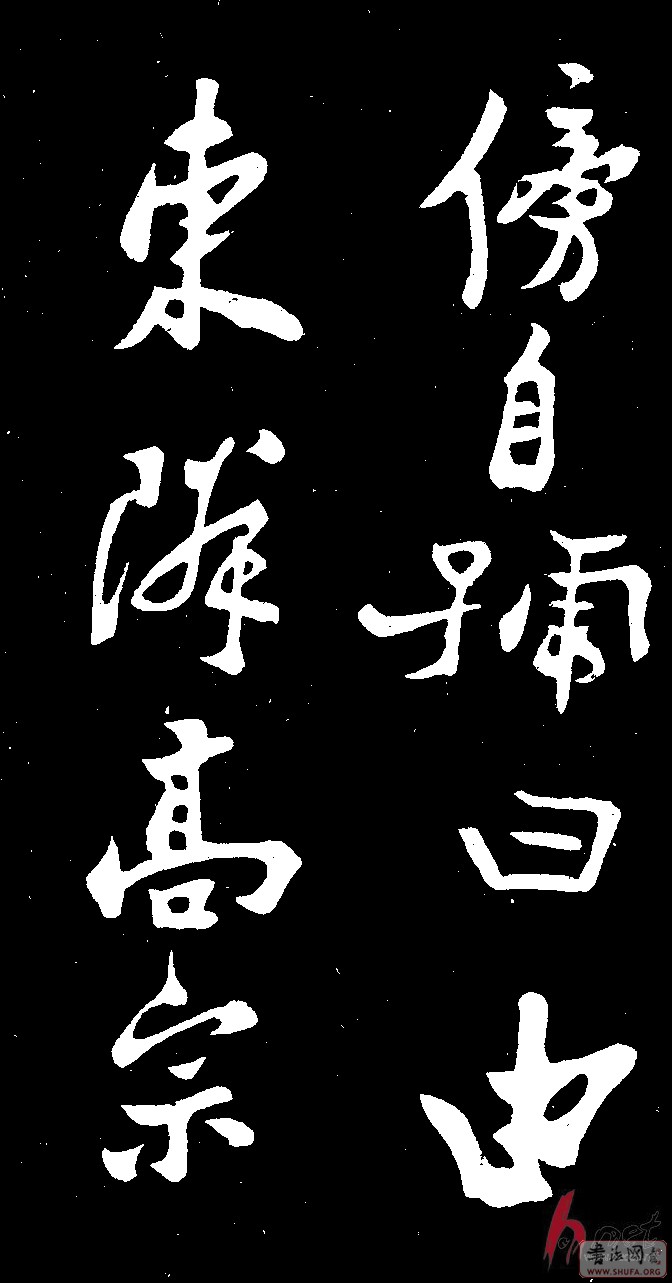 傍自號曰由
東隣高宗
書法网
WWW.SHUFA.ORG